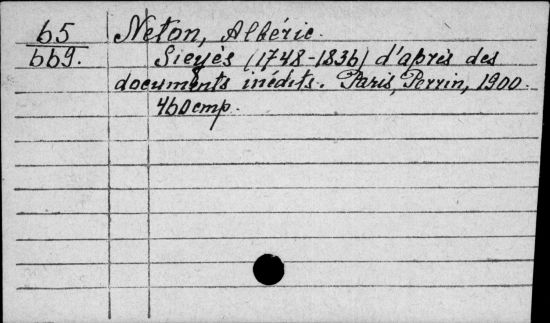 65
669.
Neton, Albéric.
Sieyès (1748-1836) d'après des
documents inédits. Paris, Perrin, 1900.
460 cmp.